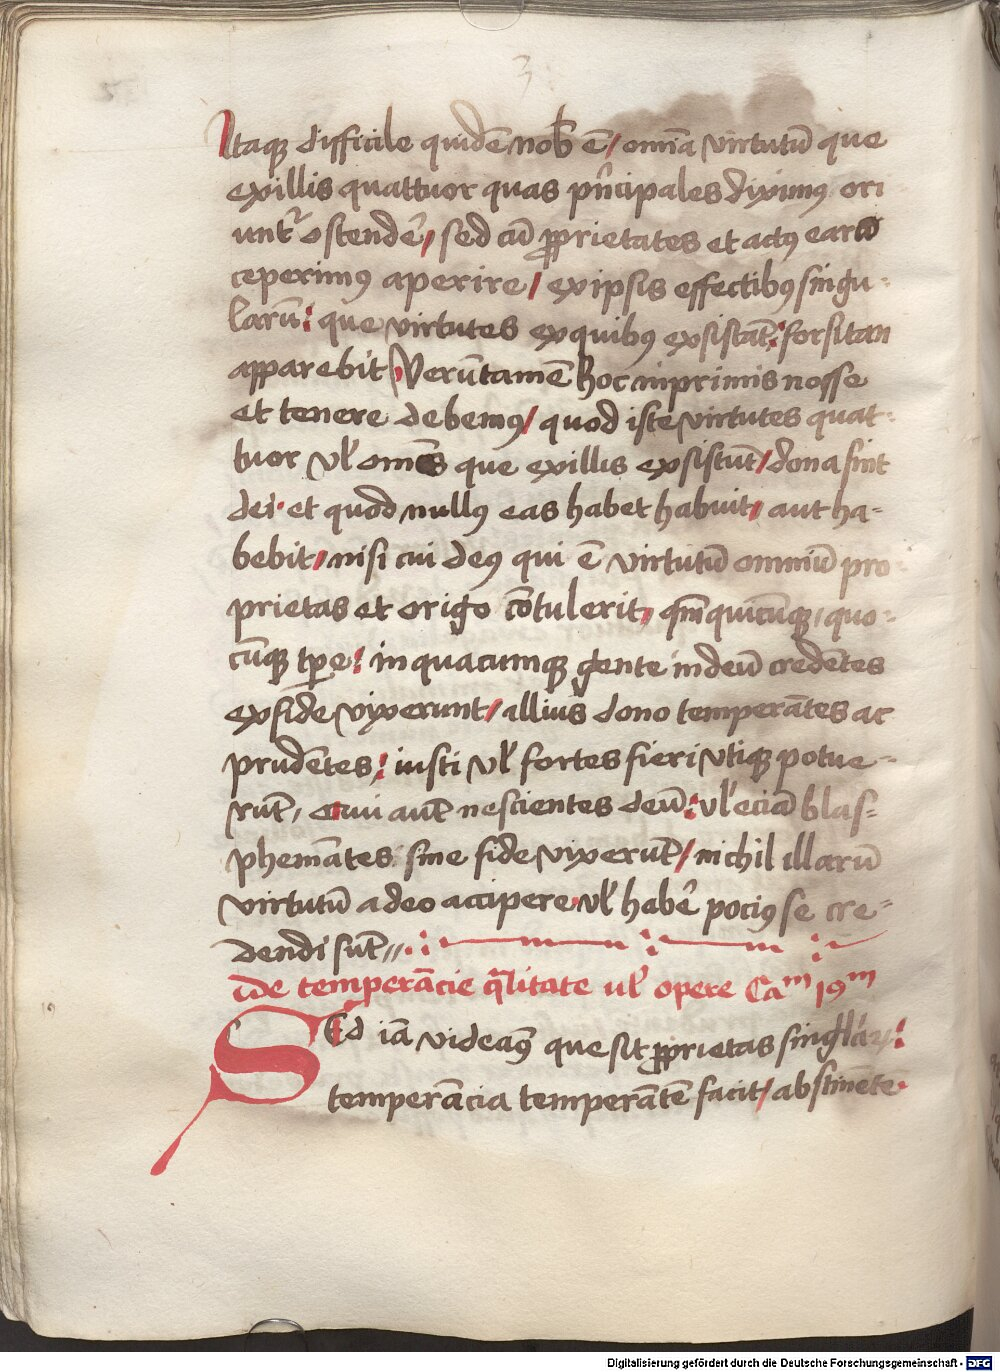 3
Itaqꝫ difficile quidē nob̄ ē / om̄a virtutū que
exillis quattuor quas pn̄cipales diximꝰ ori
unt᷑ ostendē / sed cū ꝓprietates et actꝰ earū
ceperimꝰ aperire / ex ipsis effectibꝰ singu-
larū : que virtutes ex quibꝰ exsistāt : forsitan
apparebit Verūtamē hoc inprimis nosse
et tenere debemꝰ / quod iste virtutes quat-
tuor vl̕ om̄s que exillis exsistūt / dona sint
dei · et quod nullꝰ eas habet habuit / aut ha-
bebit / nisi cui deꝰ qui ē virtutū omniū pro-
prietas et origo cōtulerit / qm̄ quicūqꝫ / quo-
cūqꝫ tp̄e : in quacumqꝫ gente in deū credētes
ex fide vixerunt / allius dono temperātes ac
prudētes : iusti vl̕ fortes fieri vtiqꝫ potue-
rūt / qui aut̄ nescientes deū : vl̕ eciā blas-
phemātes sine fide vixerūt / nichil illarū
virtutū a deo accipere · vl̕ habē pociꝰ se cre-
dendi sūt //
De temperācie q̄litate vl̕ opere Cam 19m
SEd iā videāꝰ que sit ꝓprietas singlar̄ :
temperācia temperātē facit / abstinētē ·
Digitalisierung gefördert durch die Deutsche Forschungsgemeinschaft - DFG